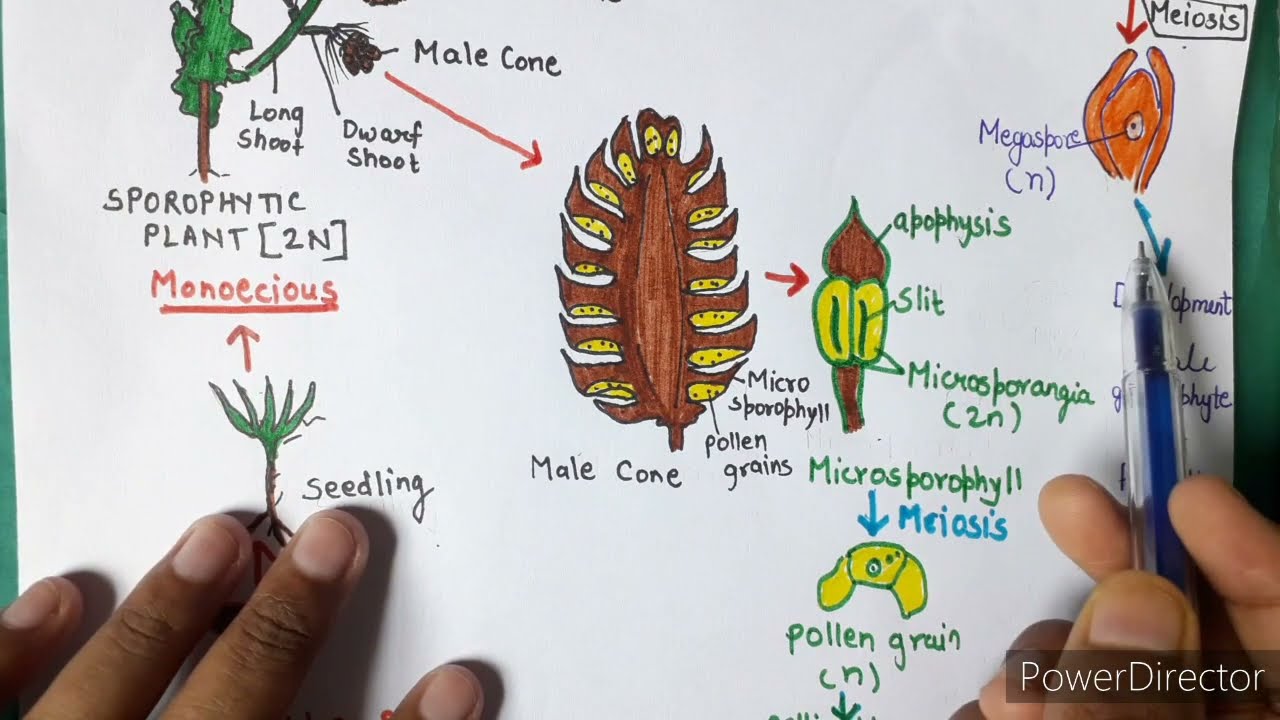 Meiosis
Male Cone
Long
Shoot
Dwarf
Shoot
Megaspore
(n)
SPOROPHYTIC
PLANT [2N]
Monoecious
apophysis
Slit
Microsporangia
(2n)
Micro
sporophyll
pollen
grains
Male Cone
Microsporophyll
Seedling
Meiosis
pollen grain
(n)
PowerDirector